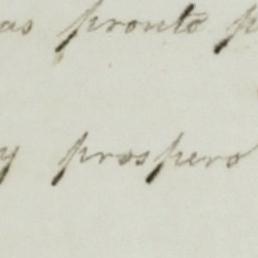 as pronto p
y prospero